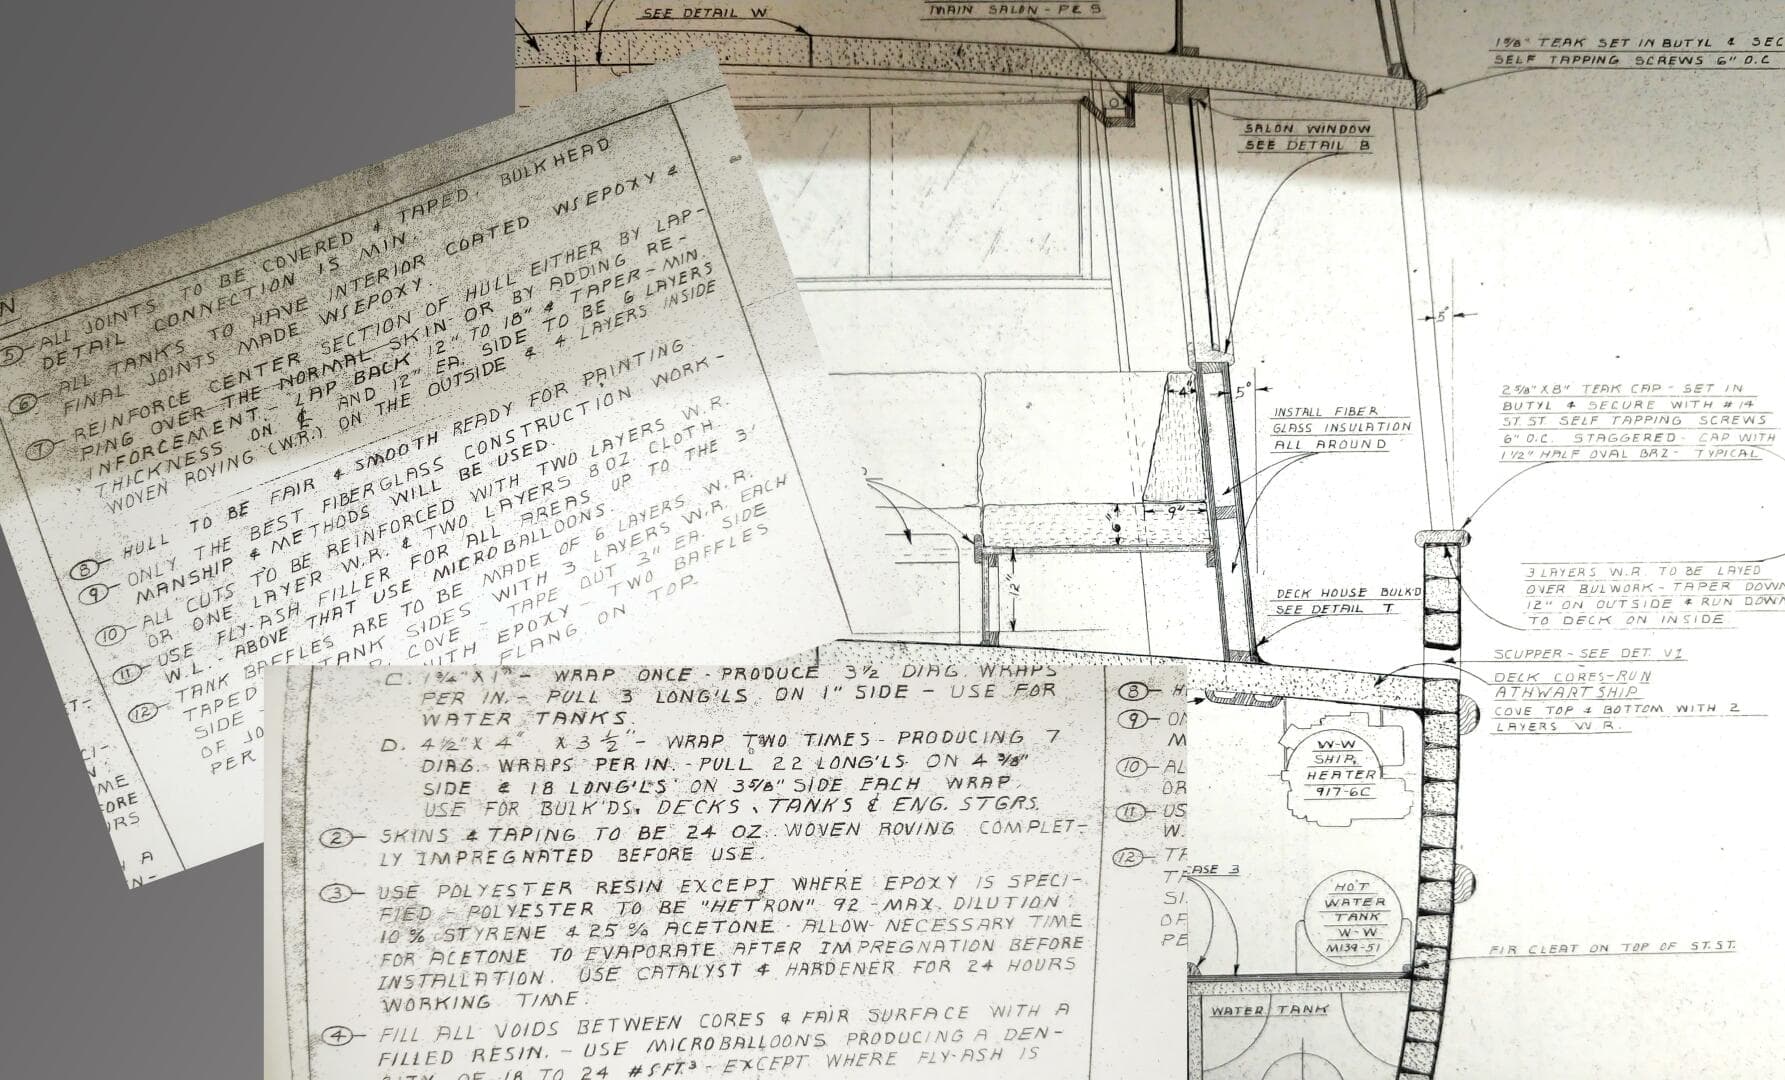 SEE DETAIL W
MAIN SALON - PC S
1 5/8" TEAK SET IN BUTYL & SEC
SELF TAPPING SCREWS 6" O.C
SALON WINDOW
SEE DETAIL B
5°
2 5/8" X 8" TEAK CAP - SET IN
BUTYL & SECURE WITH #14
ST. ST. SELF TAPPING SCREWS
6" O.C. STAGGERED - CAP WITH
1 1/2" HALF OVAL BRZ - TYPICAL
4"
5°
INSTALL FIBER
GLASS INSULATION
ALL AROUND
9"
6"
12"
3 LAYERS W.R. TO BE LAYED
OVER BULWORK - TAPER DOWN
12" ON OUTSIDE & RUN DOWN
TO DECK ON INSIDE
DECK HOUSE BULK'D
SEE DETAIL T
SCUPPER - SEE DET. V1
DECK CORES - RUN
ATHWARTSHIP
COVE TOP & BOTTOM WITH 2
LAYERS W.R.
W-W
SHIP.
HEATER
917-6C
HOT
WATER
TANK
W-W
M139-51
FIR CLEAT ON TOP OF ST. ST.
WATER TANK
ASE 3
N
5 - ALL JOINTS TO BE COVERED & TAPED. BULKHEAD
DETAIL CONNECTION IS MIN.
6 ALL TANKS TO HAVE INTERIOR COATED W/EPOXY &
FINAL JOINTS MADE W/EPOXY.
7 - REINFORCE CENTER SECTION OF HULL EITHER BY LAP-
PING OVER THE NORMAL SKIN - OR BY ADDING RE-
INFORCEMENT - LAP BACK 12" TO 18" & TAPER - MIN.
THICKNESS ON ℄ AND 12" EA. SIDE TO BE 6 LAYERS
WOVEN ROVING (W.R.) ON THE OUTSIDE & 4 LAYERS INSIDE
8 - HULL TO BE FAIR & SMOOTH READY FOR PAINTING
9 - ONLY THE BEST FIBERGLASS CONSTRUCTION WORK-
MANSHIP & METHODS WILL BE USED.
10 - ALL CUTS TO BE REINFORCED WITH TWO LAYERS W.R.
OR ONE LAYER W.R. & TWO LAYERS 8 OZ CLOTH.
11 - USE FLY-ASH FILLER FOR ALL AREAS UP TO THE 3'
W.L. - ABOVE THAT USE MICROBALLOONS.
12 - TANK BAFFLES ARE TO BE MADE OF 6 LAYERS W.R.
TAPED TANK SIDES WITH 3 LAYERS W.R. EACH
SIDE - COVE - TAPE OUT 3" EA. SIDE
OF JO WITH EPOXY - TWO BAFFLES
PER FLANG ON TOP.
T-
CI-
N.
ME
ORE
RS
A
N-
C. 1 3/4" X 1" - WRAP ONCE - PRODUCE 3 1/2 DIAG. WRAPS
PER IN. - PULL 3 LONG'LS ON 1" SIDE - USE FOR
WATER TANKS.
D. 4 1/2" X 4" X 3 1/2" - WRAP TWO TIMES - PRODUCING 7
DIAG. WRAPS PER IN. - PULL 22 LONG'LS ON 4 3/8"
SIDE & 18 LONG'LS ON 3 5/8" SIDE EACH WRAP.
USE FOR BULK'DS, DECKS, TANKS & ENG. STGRS.
2 - SKINS & TAPING TO BE 24 OZ. WOVEN ROVING COMPLET-
LY IMPREGNATED BEFORE USE.
3 - USE POLYESTER RESIN EXCEPT WHERE EPOXY IS SPECI-
FIED - POLYESTER TO BE "HETRON" 92 - MAX. DILUTION:
10 % STYRENE & 25 % ACETONE - ALLOW NECESSARY TIME
FOR ACETONE TO EVAPORATE AFTER IMPREGNATION BEFORE
INSTALLATION. USE CATALYST & HARDENER FOR 24 HOURS
WORKING TIME.
4 - FILL ALL VOIDS BETWEEN CORES & FAIR SURFACE WITH A
FILLED RESIN. - USE MICROBALLOONS PRODUCING A DEN-
SITY OF 18 TO 24 #S FT.³ - EXCEPT WHERE FLY-ASH IS
8 - H
9 - ON
M
10 - AL
OR
11 - US
W.
12 - TA
TA
SI
OF
PE